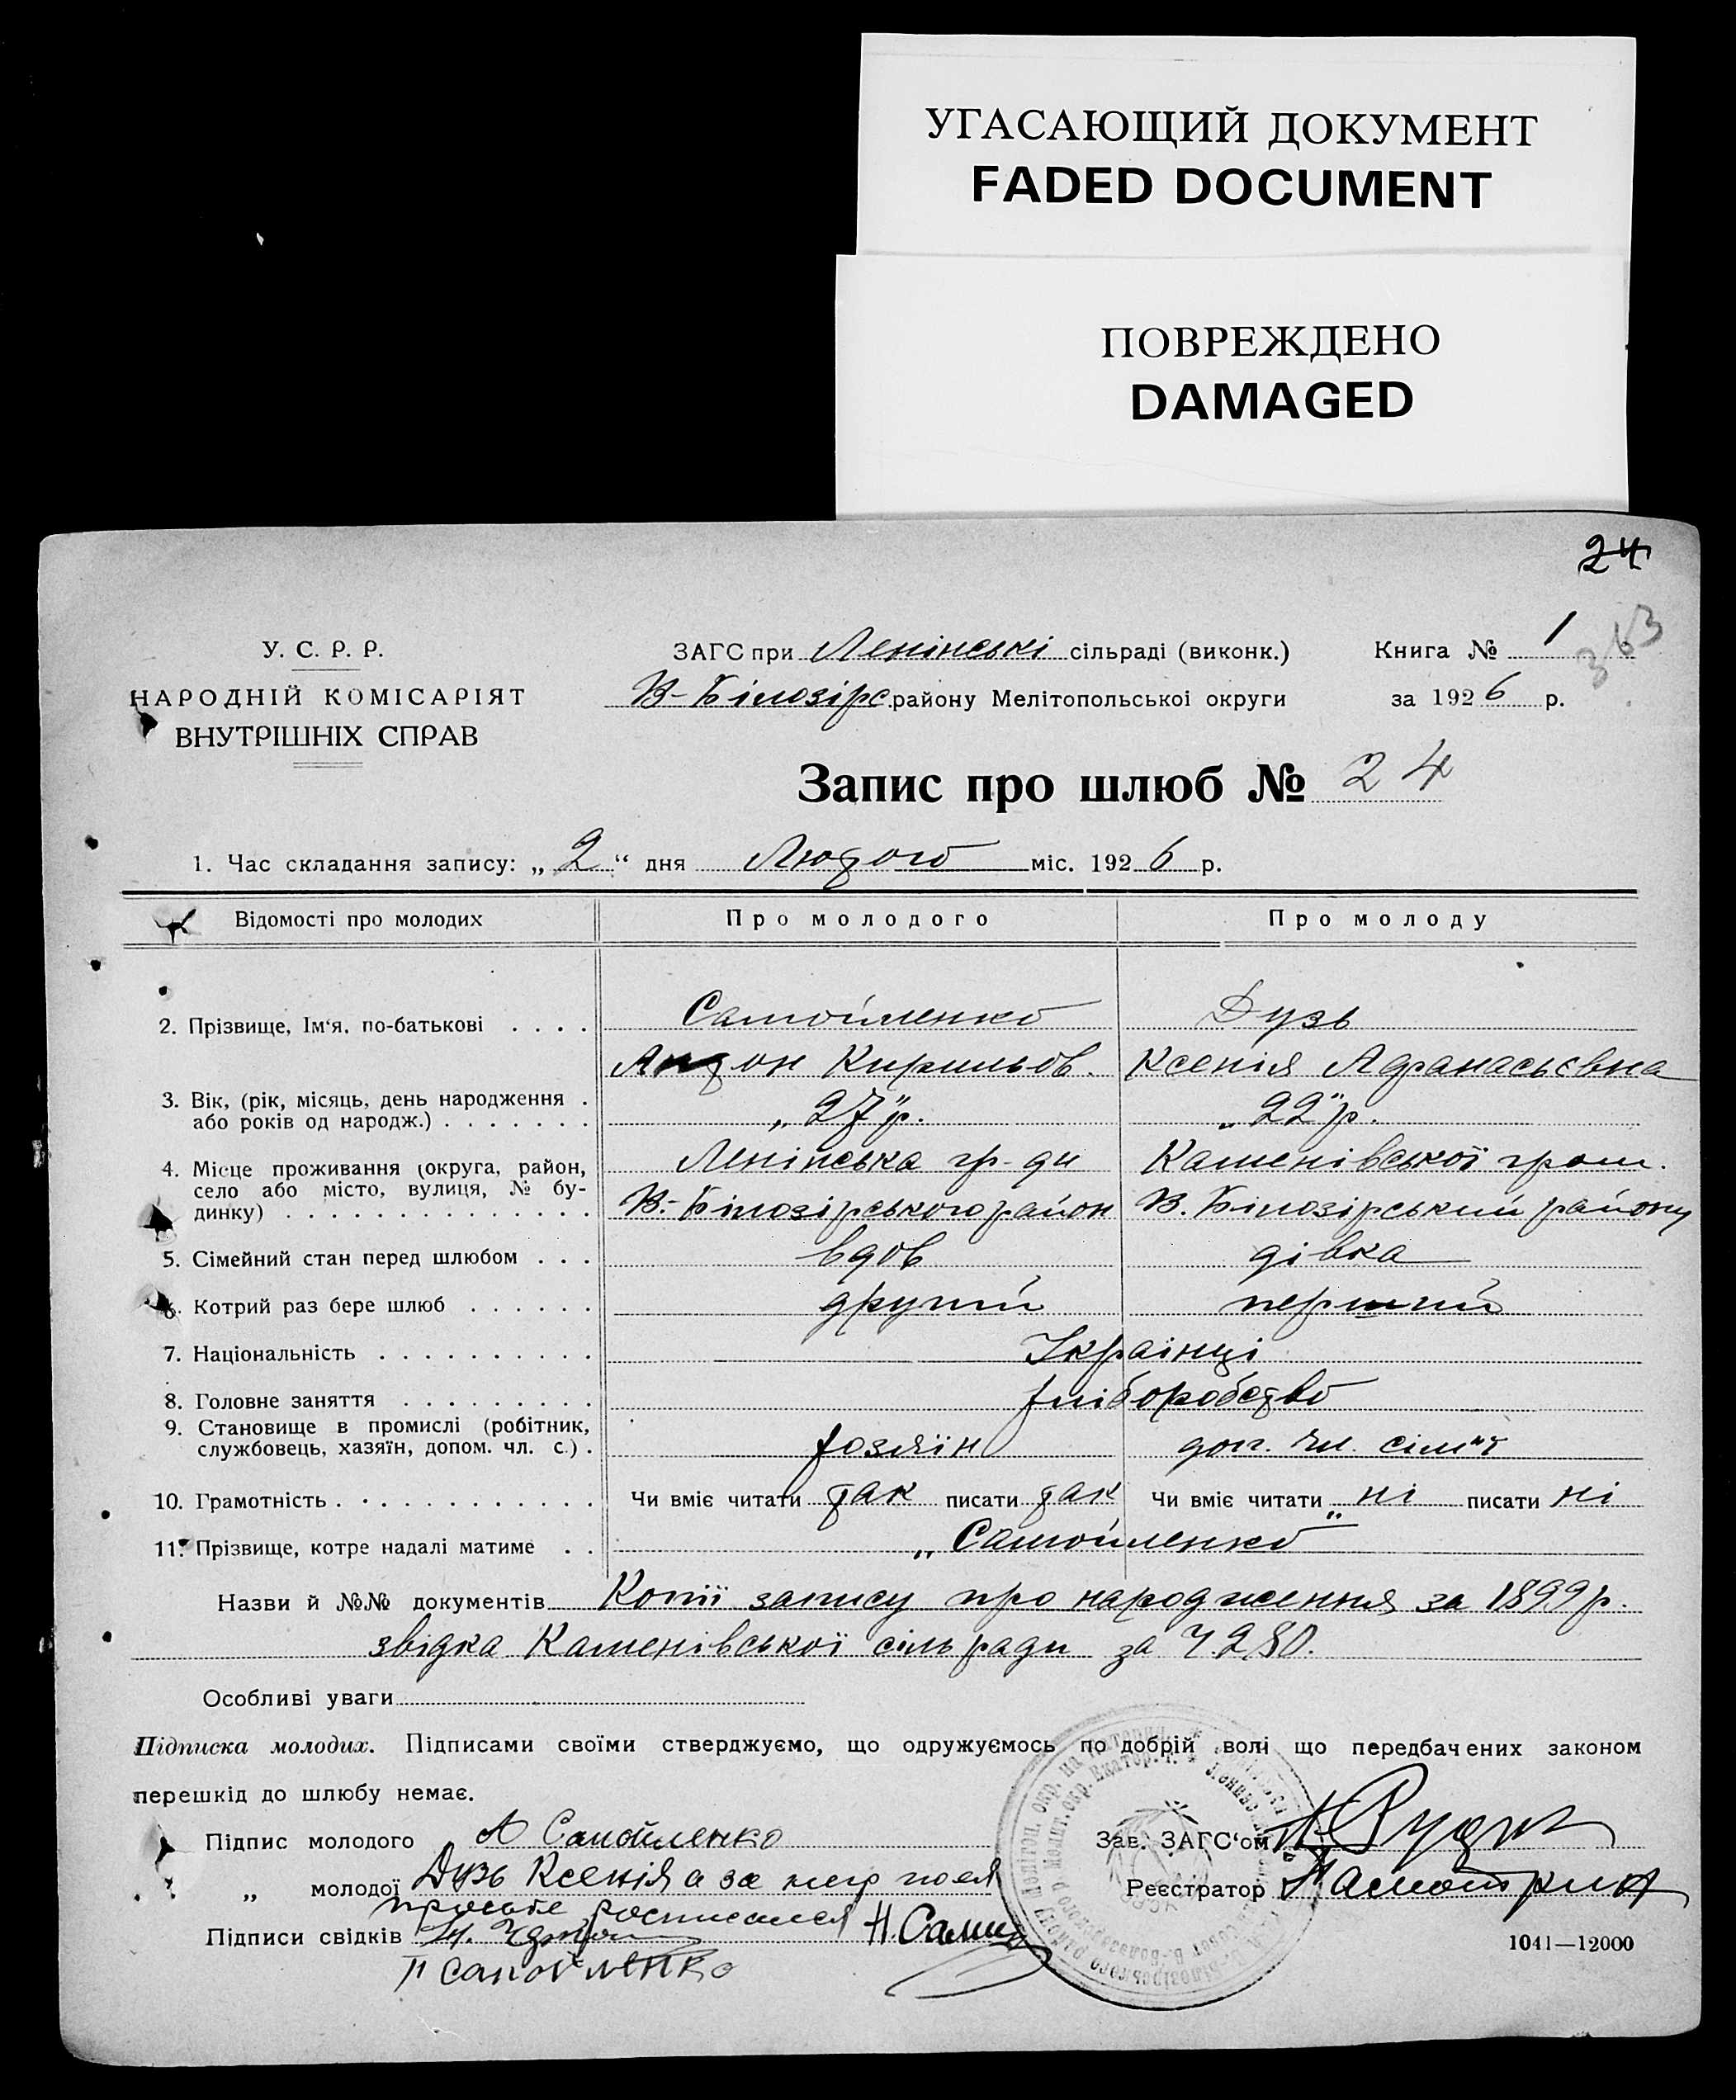 УГАСАЮЩИЙ ДОКУМЕНТ
FADED DOCUMENT
ПОВРЕЖДЕНО
DAMAGED
24
У. С. Р. Р.
НАРОДНІЙ КОМІСАРІЯТ
ВНУТРІШНІХ СПРАВ
ЗАГС при Ленінські сільраді (виконк.)
В-Білозірс. району Мелітопольської округи
Книга № 1
363
за 1926 р.
Запис про шлюб № 24
1. Час складання запису: „2“ дня Лютого міс. 1926 р.
Відомості про молодих Про молодого Про молоду
2. Прізвище, Ім'я, по-батькові . . . . Самойленко Дузь
Антон Кирильов. Ксенія Афанасьєвна
3. Вік, (рік, місяць, день народження .
або років од народж.) . . . . . . . „27"р. „22"р.
4. Місце проживання (округа, район,
село або місто, вулиця, № бу-
динку) . . . . . . . . . . . . . .
Ленінська гр-ди Каменівської гром.
В.-Білозірського район В. Білозірський району
5. Сімейний стан перед шлюбом . . . вдов дівка
6. Котрий раз бере шлюб . . . . . . другий перший
7. Національність . . . . . . . . . . Українці
8. Головне заняття . . . . . . . . . хліборобство
9. Становище в промислі (робітник,
службовець, хазяїн, допом. чл. с.) . хозяїн доп. чл. сім"ї
10. Грамотність . . . . . . . . . . . Чи вміє читати так писати так Чи вміє читати ні писати ні
11. Прізвище, котре надалі матиме . . „Самойленко"
Назви й №№ документів Копії запису про народження за 1899р.
звідка Каменівської сільради за Ч.280.
Особливі уваги
Підписка молодих. Підписами своїми стверджуємо, що одружуємось по добрій волі що передбачених законом
перешкід до шлюбу немає.
Підпис молодого А Самойленко
Зав. ЗАГС'ом
„ молодої Дузь Ксенія а за
Реєстратор
росписался
Підписи свідків Н. Сами
П Самойленко
1041—12000